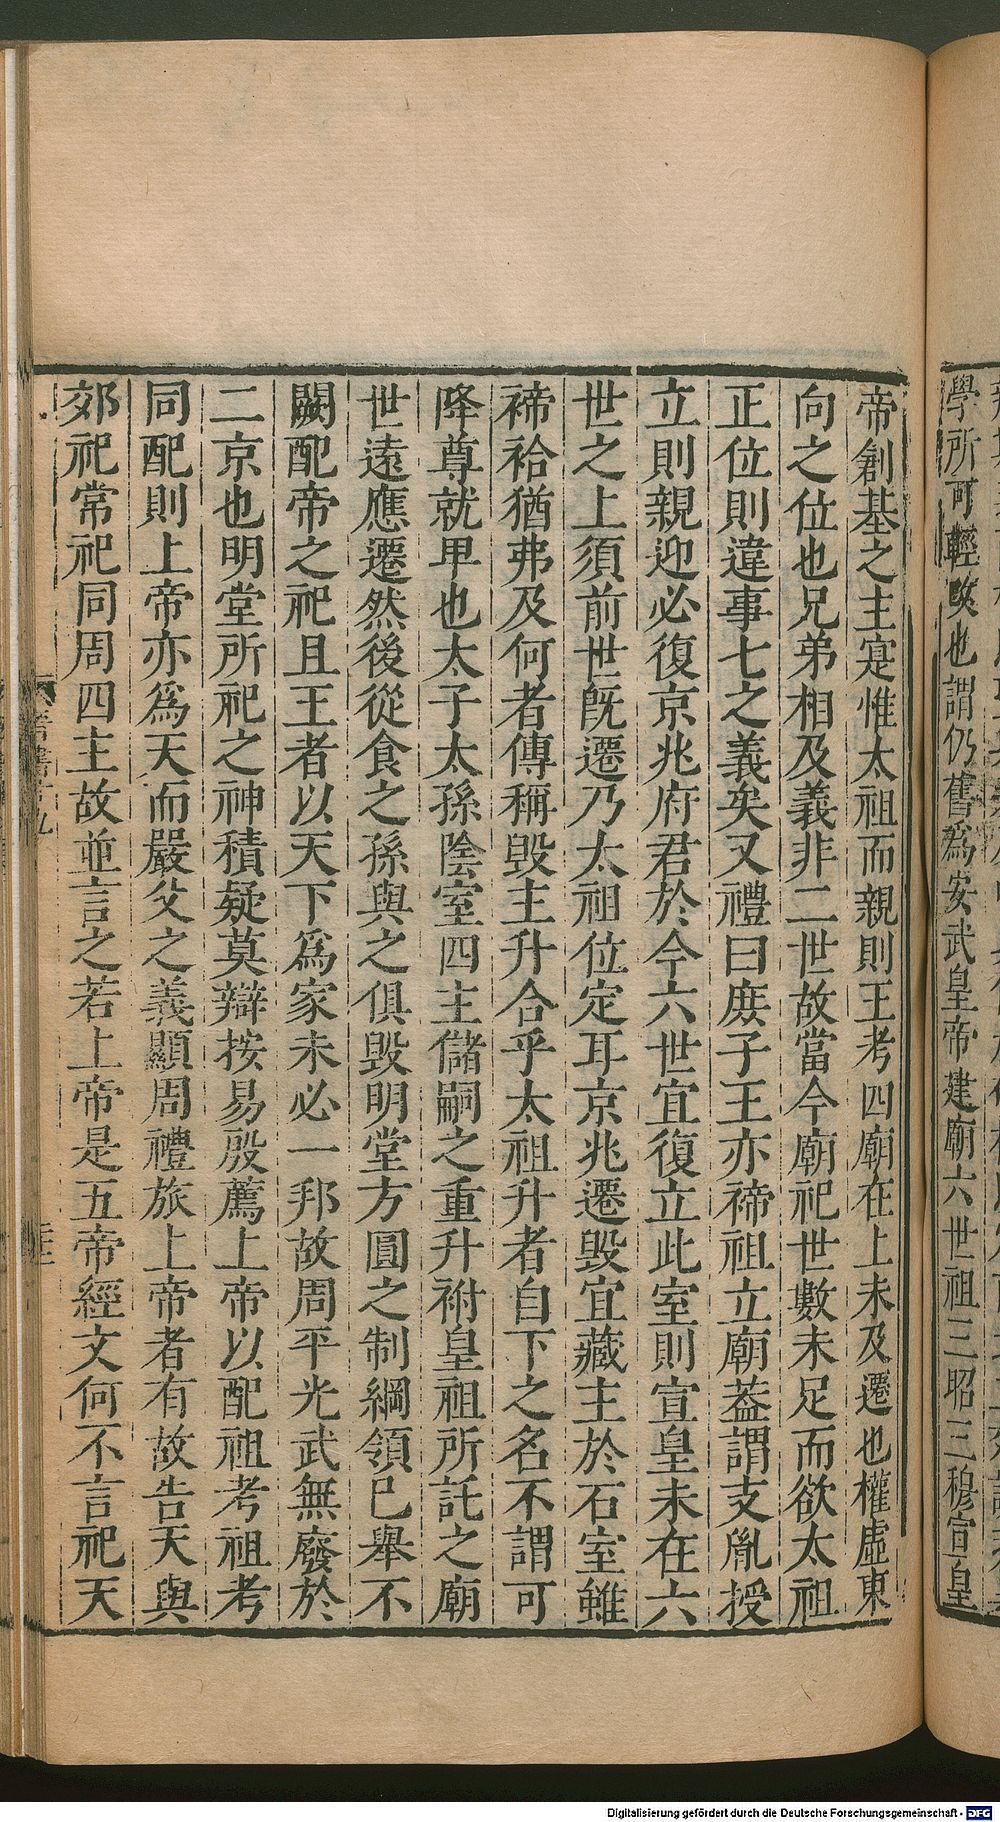 學所可輕改也謂仍舊爲安武皇帝建廟六世祖三昭三穆宣皇
帝創基之主寔惟太祖而親則王考四廟在上未及遷也權虛東
向之位也兄弟相及義非二世故當今廟祀世數未足而欲太祖
正位則違事七之義矣又禮曰庶子王亦禘祖立廟蓋謂支胤授
立則親迎必復京兆府君於今六世宜復立此室則宣皇未在六
世之上須前世既遷乃太祖位定耳京兆遷毀宜藏主於石室雖
禘祫猶弗及何者傳稱毀主升合乎太祖升者自下之名不謂可
降尊就卑也太子太孫陰室四主儲嗣之重升祔皇祖所託之廟
世遠應遷然後從食之孫與之俱毀明堂方圓之制綱領已舉不
闕配帝之祀且王者以天下爲家未必一邦故周平光武無廢於
二京也明堂所祀之神積疑莫辯按易殷薦上帝以配祖考祖考
同配則上帝亦爲天而嚴父之義顯周禮旅上帝者有故告天與
郊祀常祀同周四主故並言之若上帝是五帝經文何不言祀天
Digitalisierung gefördert durch die Deutsche Forschungsgemeinschaft - DFG